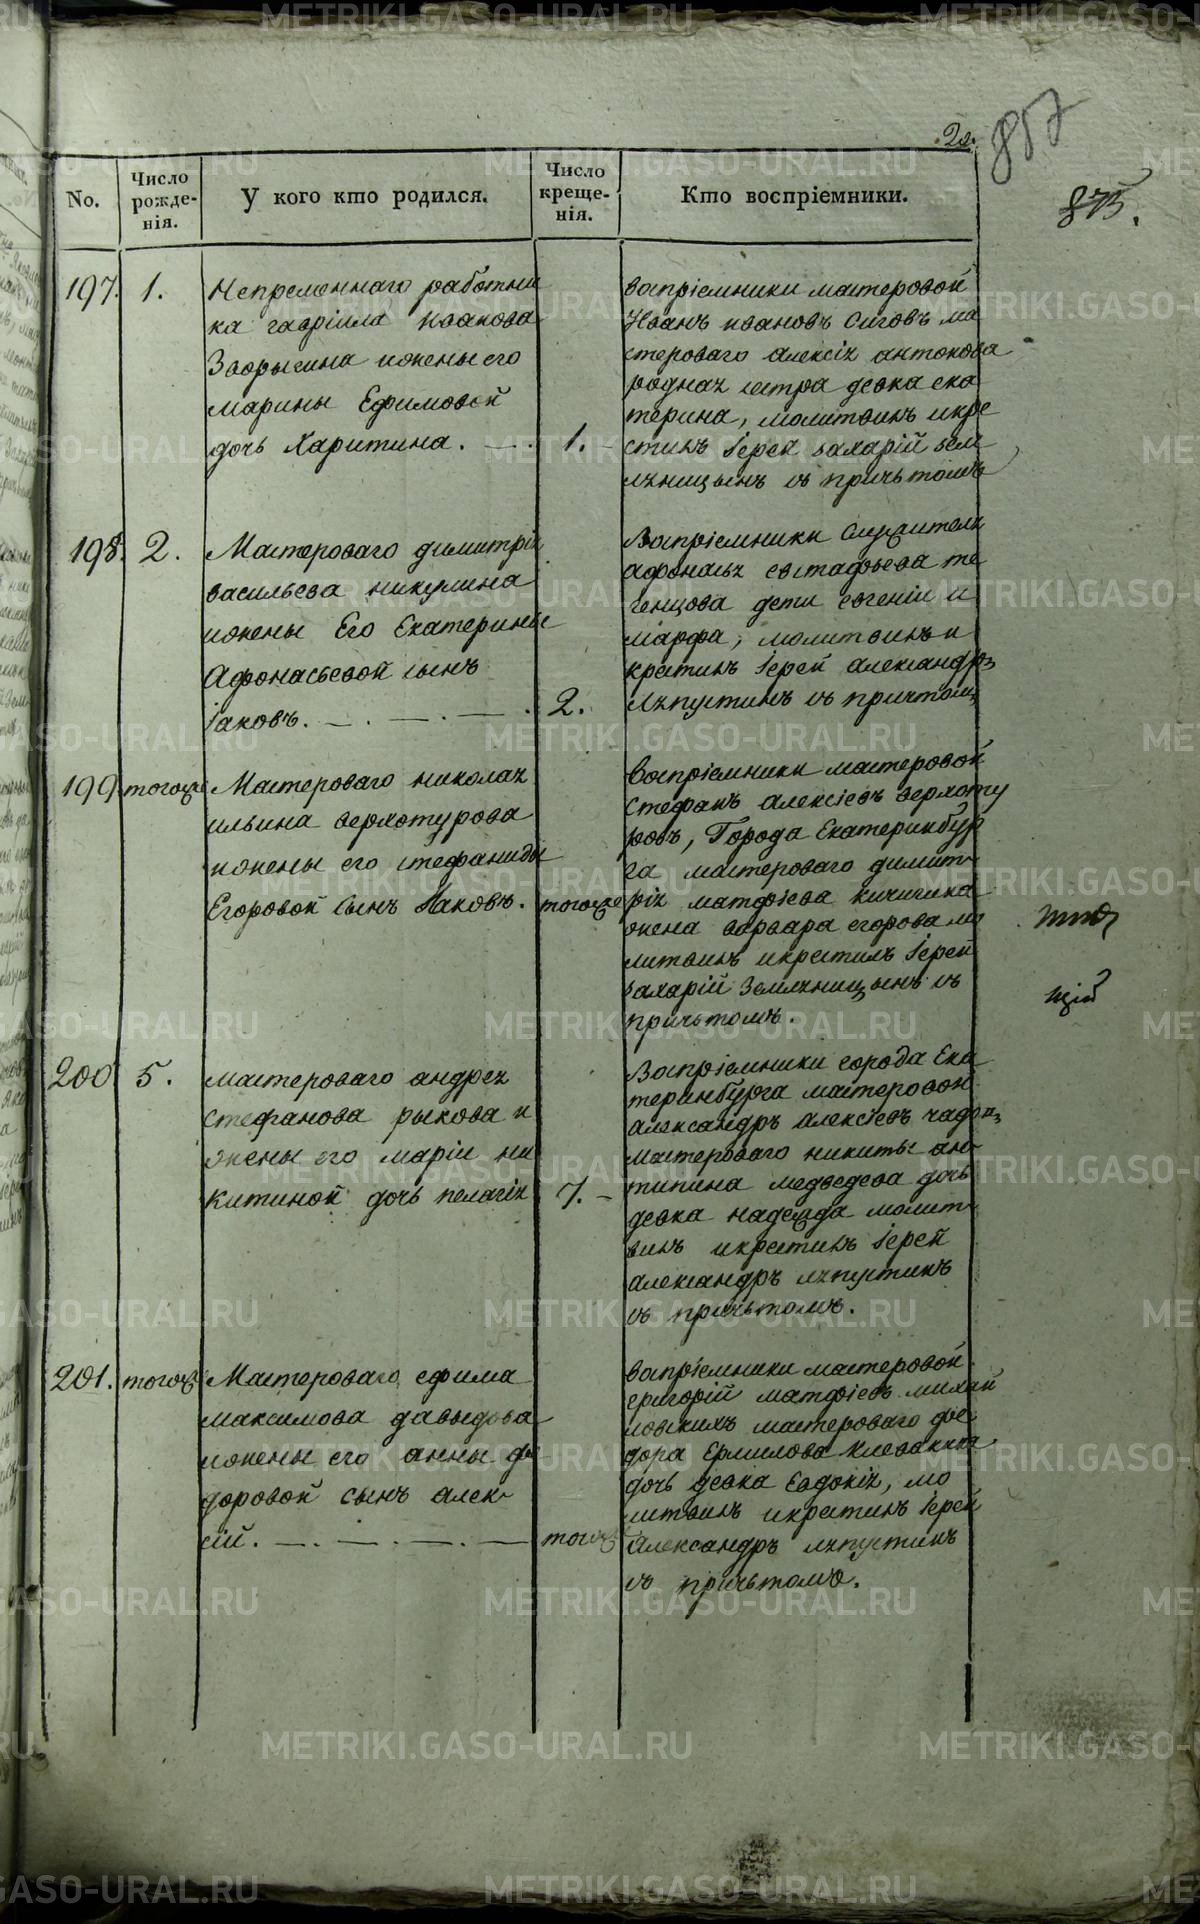 .28.
857
875.
No.
Число рожде-
нія.
У кого кто родился.
Число
креще-
нія.
Кто воспріемники.
197. 1.
Непременнаго работни
ка гавріила иванова
марины Ефимовой
дочь Харитина.
1.
воспріемники мастеровой
Иванъ ивановъ Сиговъ ма
стероваго алексія антонова
родная сестра девка ека
терина, молитвилъ икре
стилъ іерей захарій земл
яницынъ съ причьтомъ
198. 2.
Мастероваго димитрія
васильева никулина
ижены Его Екатерины
Афонасьевой сынъ
іаковъ.
2.
Воспріемники Служителя
афонасья евстафьева
дети евгеній и
марфа, молитвилъ и
крестилъ іерей александръ
ляпустинъ съ причтомъ
199. тогоже
Мастероваго николая
ильина верхотурова
ижены его стефаниды
Егоровой сынъ Иаковъ.
тогоже
воспріемники мастеровой
стефанъ алексіевъ верхоту
ровъ, Города Екатеринбур
га мастероваго димит
рія матфіева кичигина
жена варвара егорова мо
литвилъ икрестилъ іерей
захарій Земляницынъ съ
причьтомъ.
200 5.
мастероваго андрея
стефанова рыкова и
жены его маріи ни
китиной дочь пелагія
7.
Воспріемники города Ека
теринбурга мастеровой
александръ алексіевъ
мастероваго никиты ан
типина медведева дочь
девка надежда молит
вилъ икрестилъ іерей
александръ ляпустинъ
съ причьтомъ.
201. тогож
Мастероваго ефима
максимова давыдова
ижены его анны фе
доровой сынъ алек
сій.
тогож
воспріемники мастеровой
григорій матфіевъ михай
ловскихъ мастероваго фео
дора Ермилова
дочь девка Евдокія, мо
литвилъ икрестилъ іерей
Александръ ляпустинъ
съ причьтомъ.
METRIKI.GASO-URAL.RU